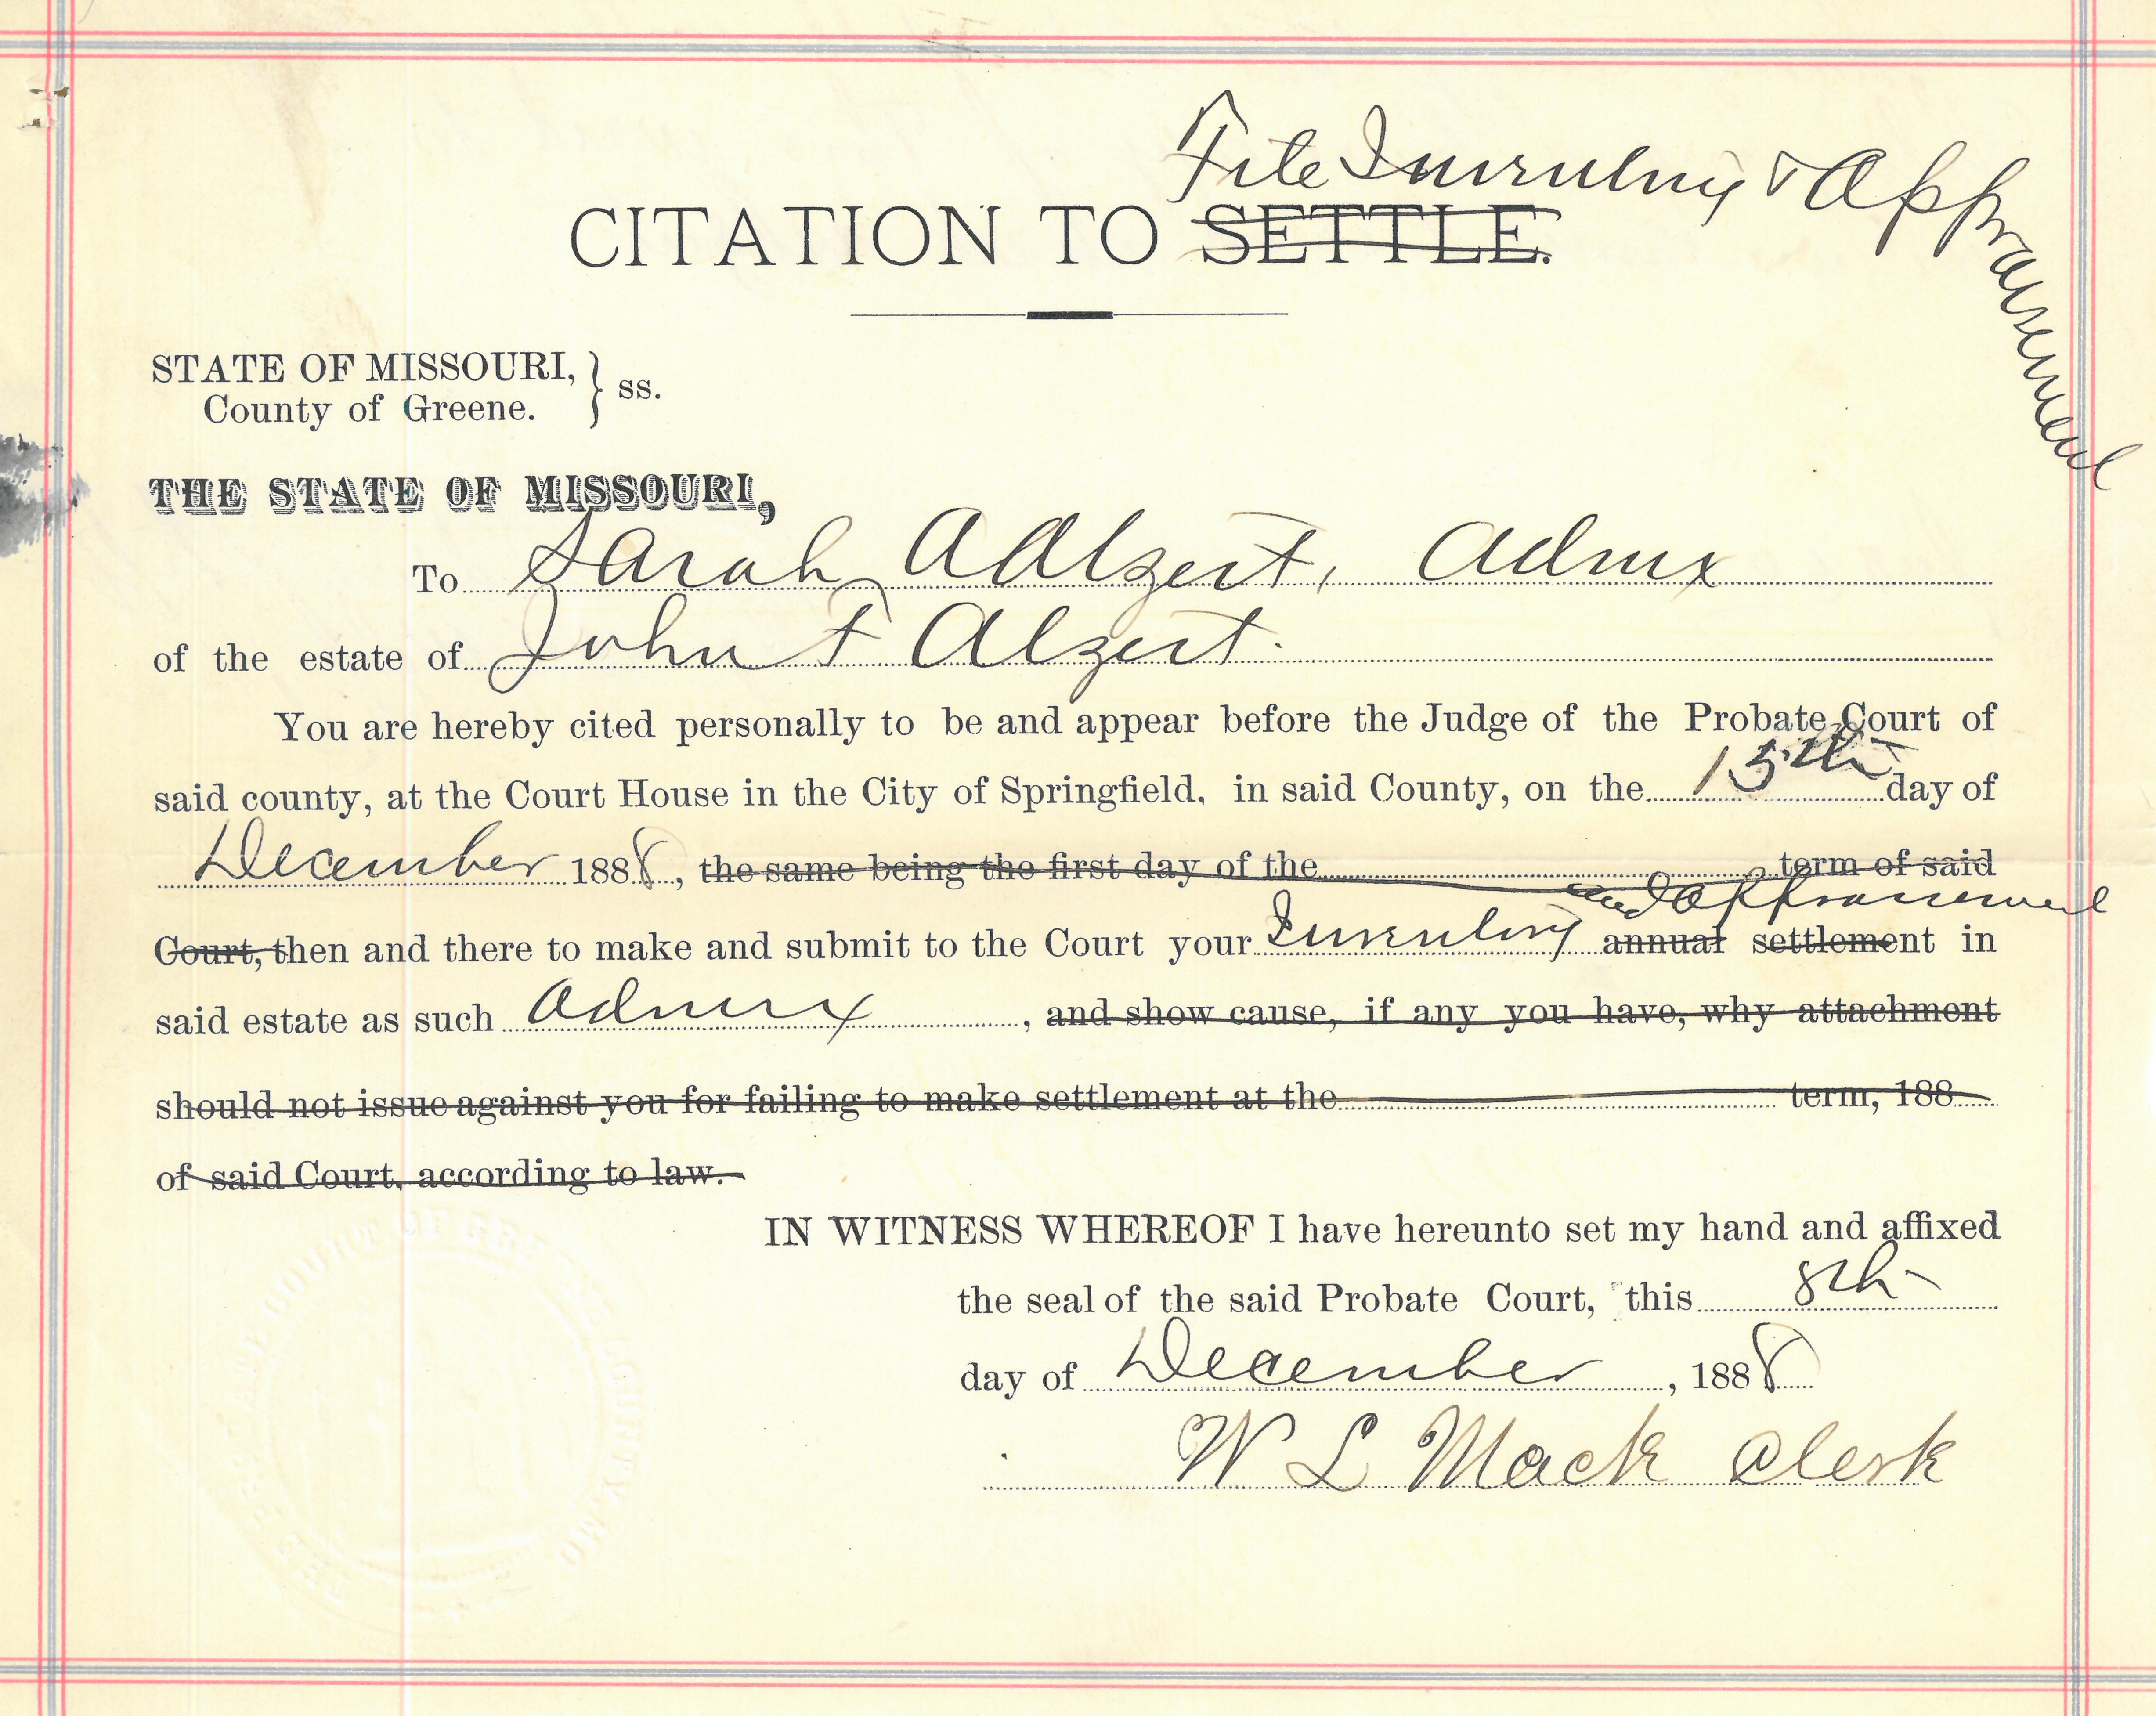 File Inventory & Appraisement
CITATION TO SETTLE.
STATE OF MISSOURI, } ss.
County of Greene.
THE STATE OF MISSOURI,
To Sarah A Alzert, Admx
of the estate of John F Alzert.
You are hereby cited personally to be and appear before the Judge of the Probate Court of
said county, at the Court House in the City of Springfield, in said County, on the 15th day of
December 1888, the same being the first day of the term of said
and Appraisement
Court, then and there to make and submit to the Court your Inventory annual settlement in
said estate as such Admx, and show cause, if any you have, why attachment
should not issue against you for failing to make settlement at the term, 188
of said Court, according to law.
IN WITNESS WHEREOF I have hereunto set my hand and affixed
the seal of the said Probate Court, this 8th
day of December, 1888
W L Mack Clerk
THE PROBATE COURT OF GREENE COUNTY, MO